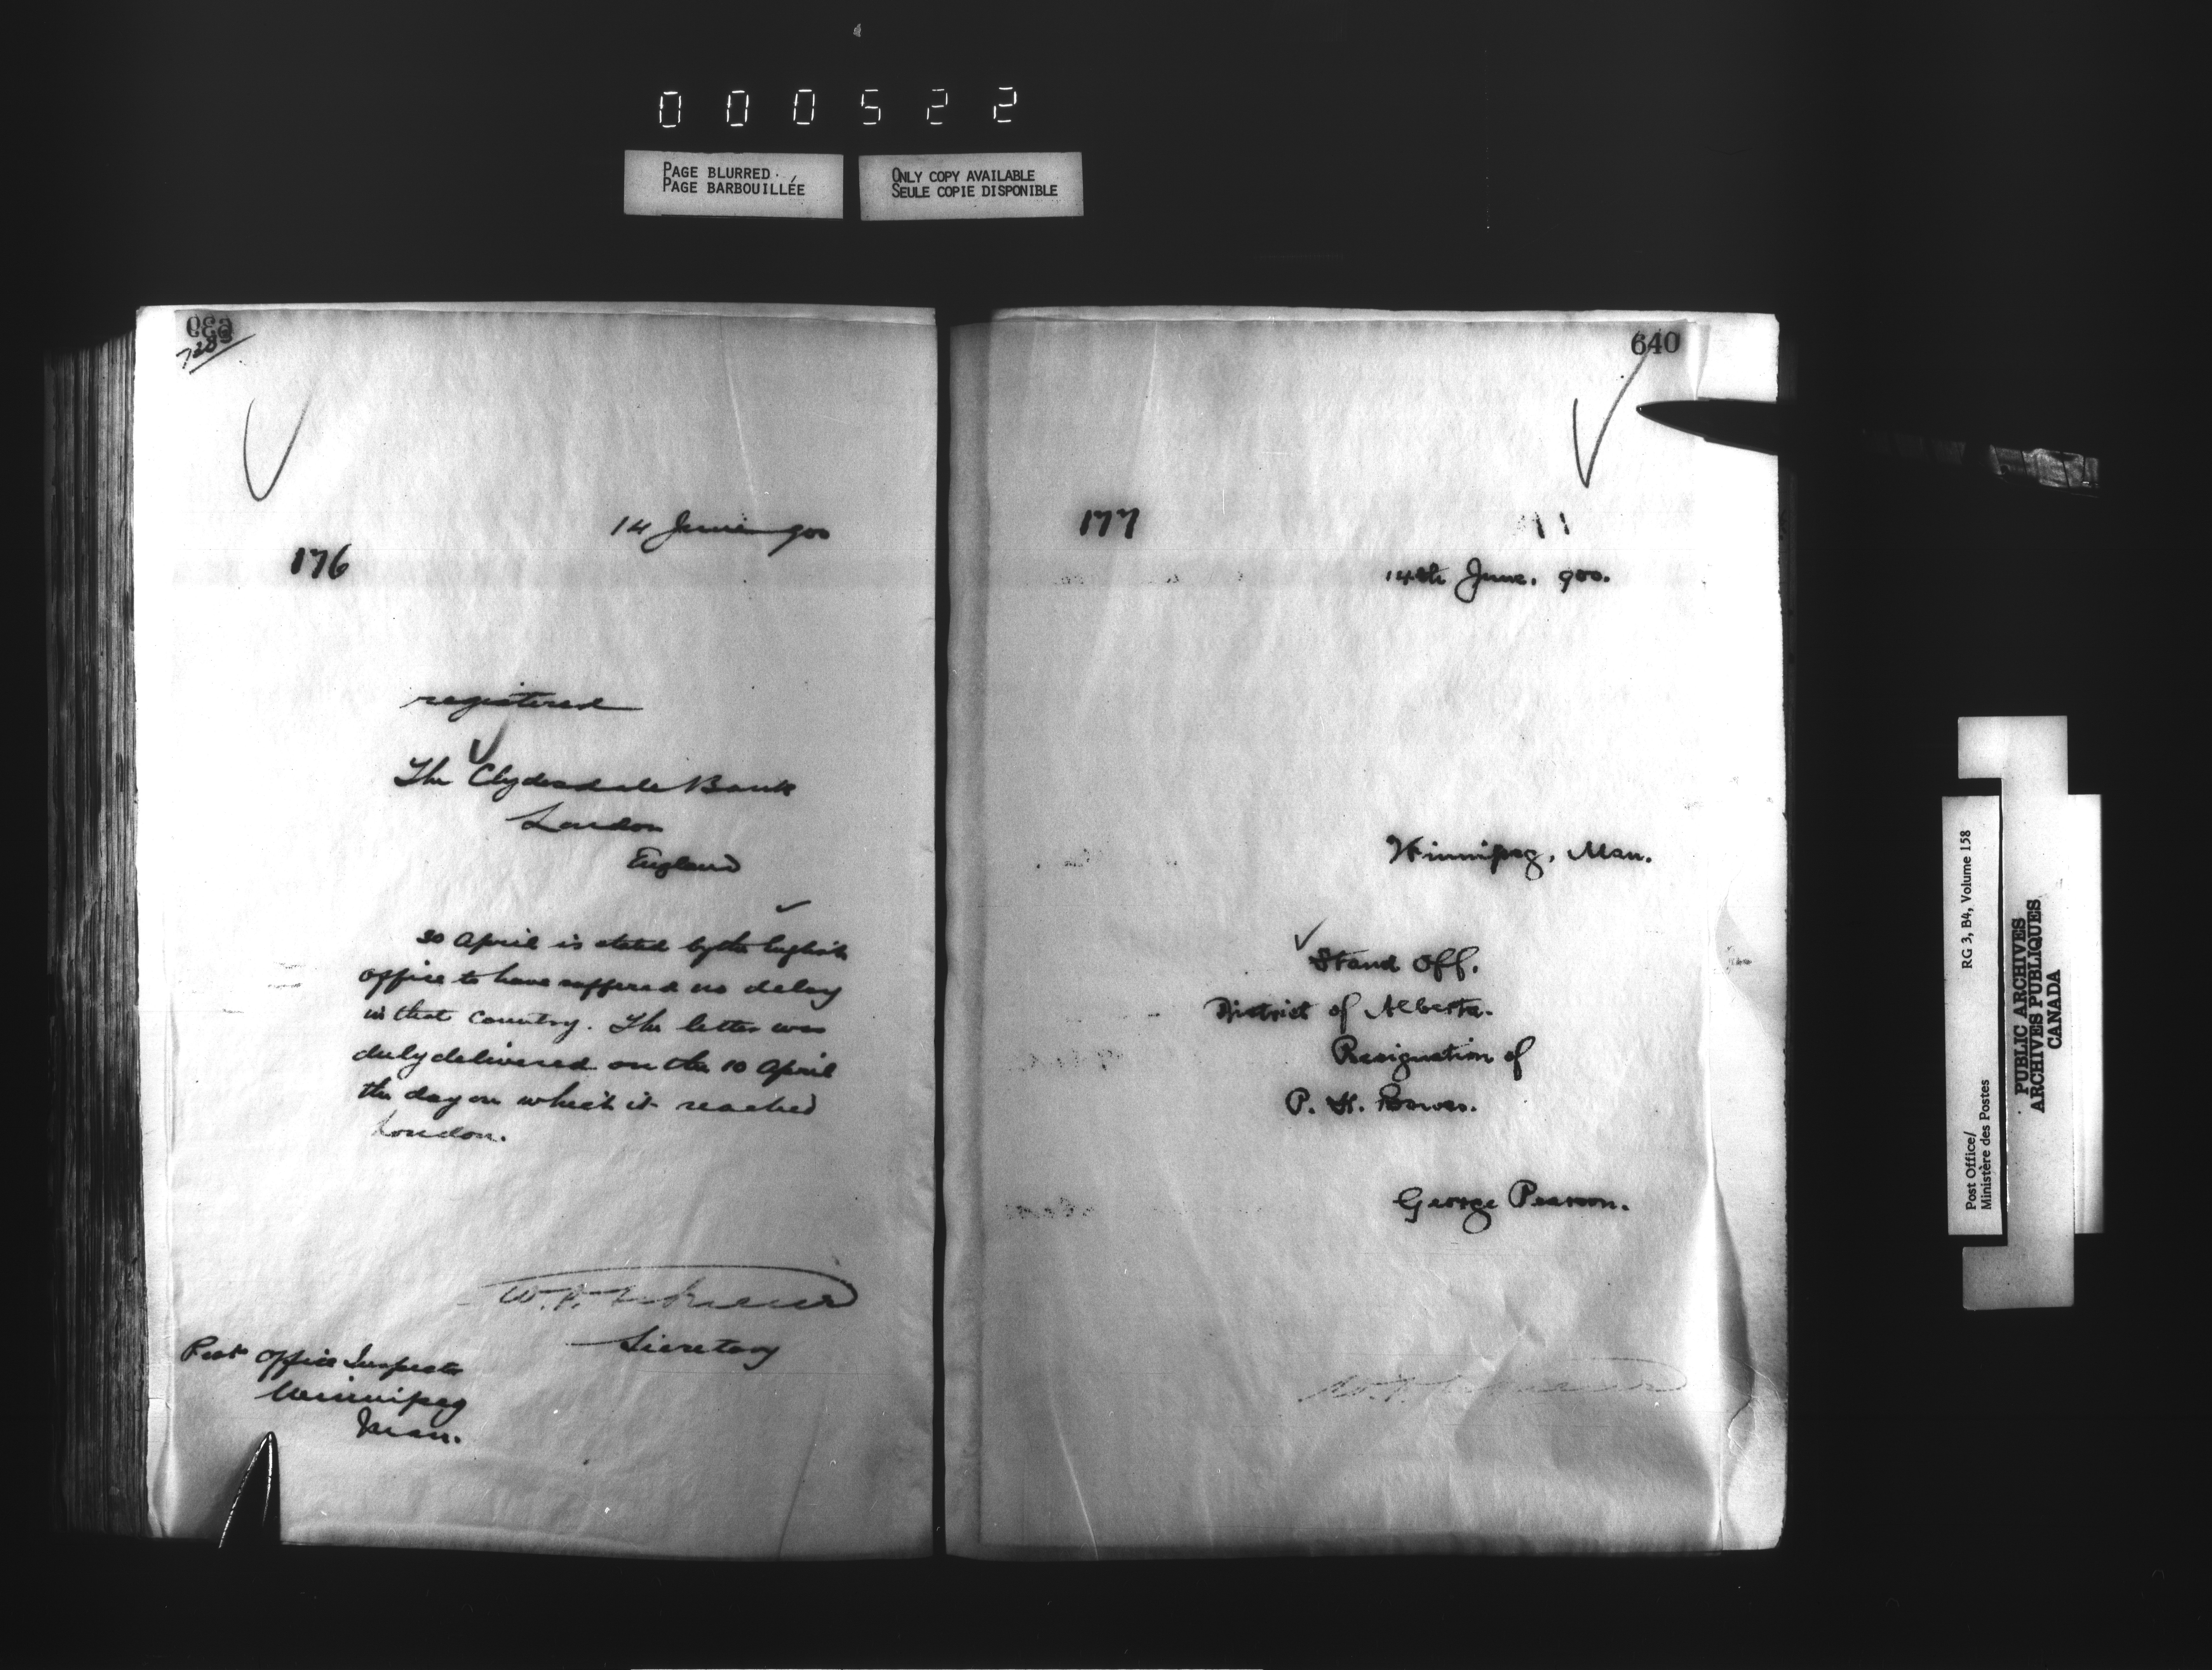 000522
PAGE BLURRED
PAGE BARBOUILLÉE
ONLY COPY AVAILABLE
SEULE COPIE DISPONIBLE
639
14 June 900
176
registered
The Clydesdale Bank
London
England
30 April is stated by the English
office to have suffered no delay
in that country. The letter was
duly delivered on the 10 April
the day on which it reached
London.
W.
Secretary
Post Office Inspector
Winnipeg
Man.
640
177
14th June. 900.
Winnipeg, Man.
Stand Off.
District of Alberta.
Resignation of
P. H.
George Pearson.
Post Office/
Ministère des Postes
RG 3, B4, Volume 158
PUBLIC ARCHIVES
ARCHIVES PUBLIQUES
CANADA